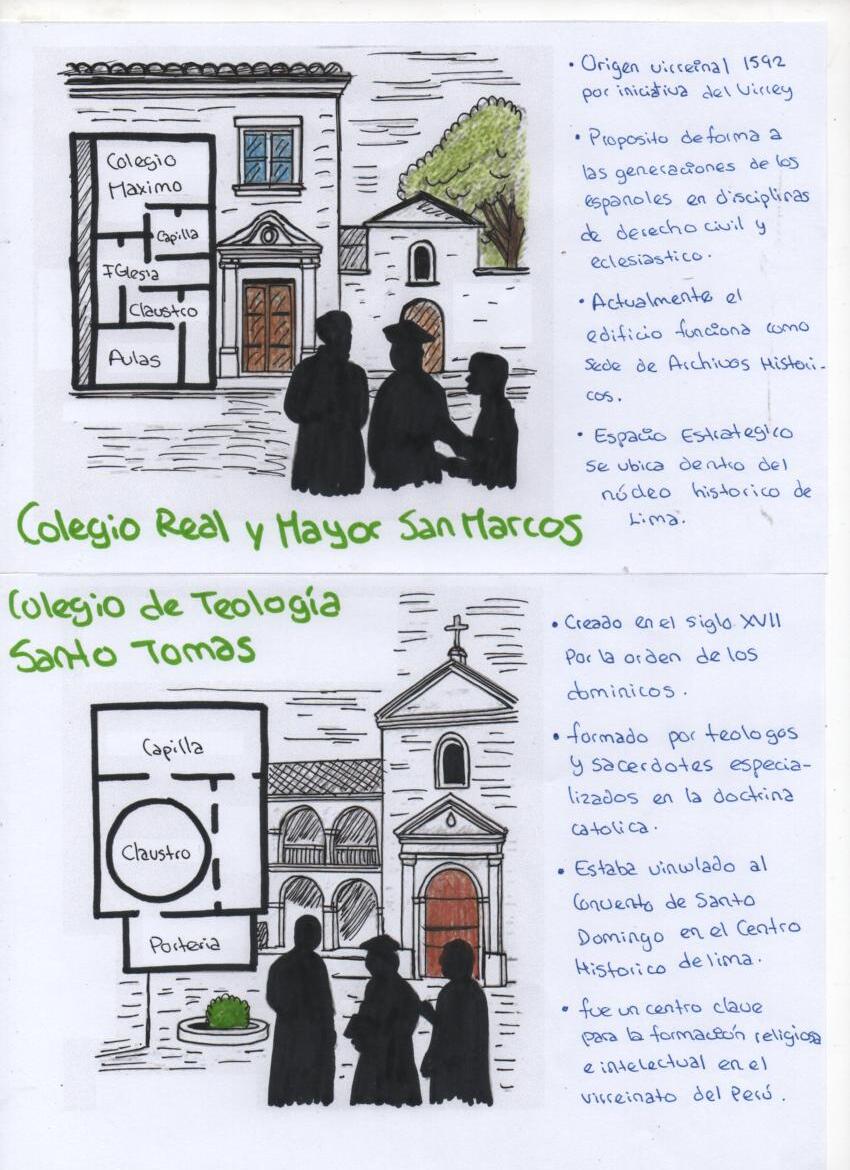 Colegio
Maximo
Capilla
IGlesia
Claustro
Aulas
• Origen virreinal 1592
por iniciativa del Virrey
• Proposito de forma a
las generaciones de los
españoles en disciplinas
de derecho civil y
eclesiastico.
• Actualmente el
edificio funciona como
Sede de Archivos Histori-
cos.
• Espacio Estrategico
Se ubica dentro del
núcleo historico de
Lima.
Colegio Real y Mayor San Marcos
Colegio de Teología
Santo Tomas
Capilla
Claustro
Porteria
• Creado en el siglo XVII
Por la orden de los
dominicos.
• formado por teologos
y sacerdotes especia-
lizados en la doctrina
catolica.
• Estaba vinculado al
Convento de Santo
Domingo en el Centro
Historico de lima.
• fue un centro clave
para la formación religiosa
e intelectual en el
virreinato del Perú.